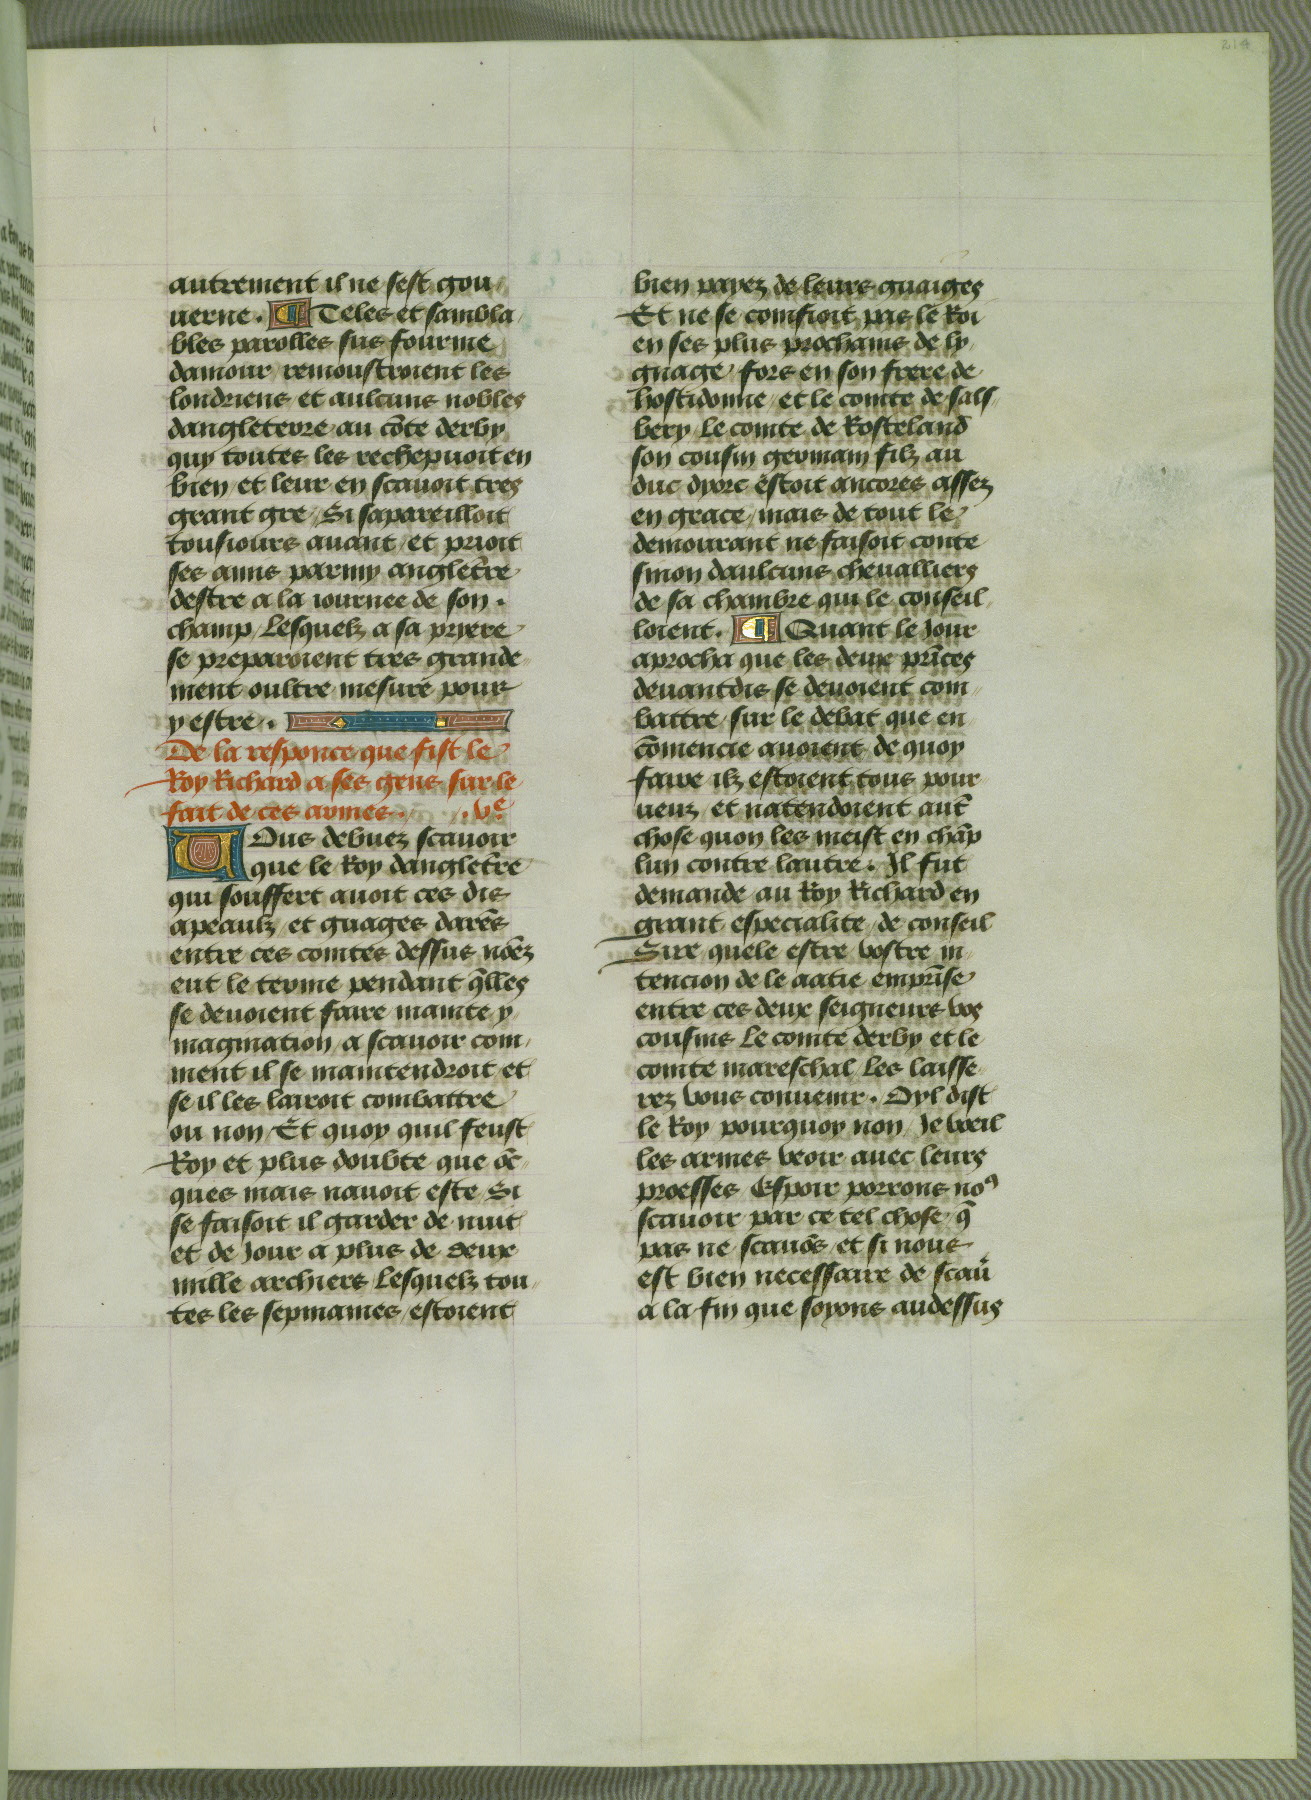 214
autrement il ne sest gou
uerne. Teles et sambla
bles parolles sus fourme
damour remoustroient les
londriens et aulcuns nobles
dangleterre au cōte derby
quy toutes les rechepuoit en
bien et leur en scauoit tres
grant gre / Si sapareilloit
tousiours auant / et prioit
ses amis parmy anglet̄re
destre a la iournee de son .
champ / Lesquelz a sa pryere
se preparoient tres grande
ment oultre mesure pour
y estre .
De la responce que fist le
Roy Richard a ses gens sur le
fait de ces armes . .vᵉ.
Vous debuez scauoir
que le Roy danglet̄re
qui souffert auoit ces dis
apeaulz / et guages darēs
entre ces comtes dessus nōez
eut le terme pendant q̄lles
se deuoient faire mainte y
magination / a scauoir com
ment il se maintendroit et
se il les lairoit combattre
ou non / Et quoy quil feust
Roy et plus doubte que oc̄
ques mais nauoit este Si
se faisoit il garder de nuit
et de Jour a plus de deux
mille archiers Lesquelz tou
tes les sepmaines estoient
bien payez de leurs guaiges
Et ne se comfioit pas le Roi
en ses plus prochains de ly
gnage / fors en son frere de
hostidonne / et le comte de sals
bery Le comte de Rosteland
son cousin germain filz au
duc dyorc estoit ancores assez
en grace / mais de tout le
demourant ne faisoit conte
sinon daulcuns cheualliers
de sa chambre qui le conseil
loient . Quant le Jour
aprocha que les deux prīces
deuantdis se deuoient com
battre / sur le debat que en
cōmencie auoient de quoy
faire ilz estoient tous pour
ueuz / et natendoient aut̄
chose quon les meist en chāp
lun contre lautre . Il fut
demande au Roy Richard en
grant especialite / de conseil
Sire quele estre vostre in
tencion de le aatie emprīse
entre ces deux seigneurs vos
cousins Le comte derby et le
comte mareschal / Les laisse
rez vous conuenir . Oyl dist
le Roy pourquoy non / Je voeil
les armes veoir auec leurs
proesses Espoir porrons noꝰ
scauoir par ce tel chose / q̄
pas ne scauōs / et si nous
est bien necessaire de scau᷑
a la fin que soyons audessus